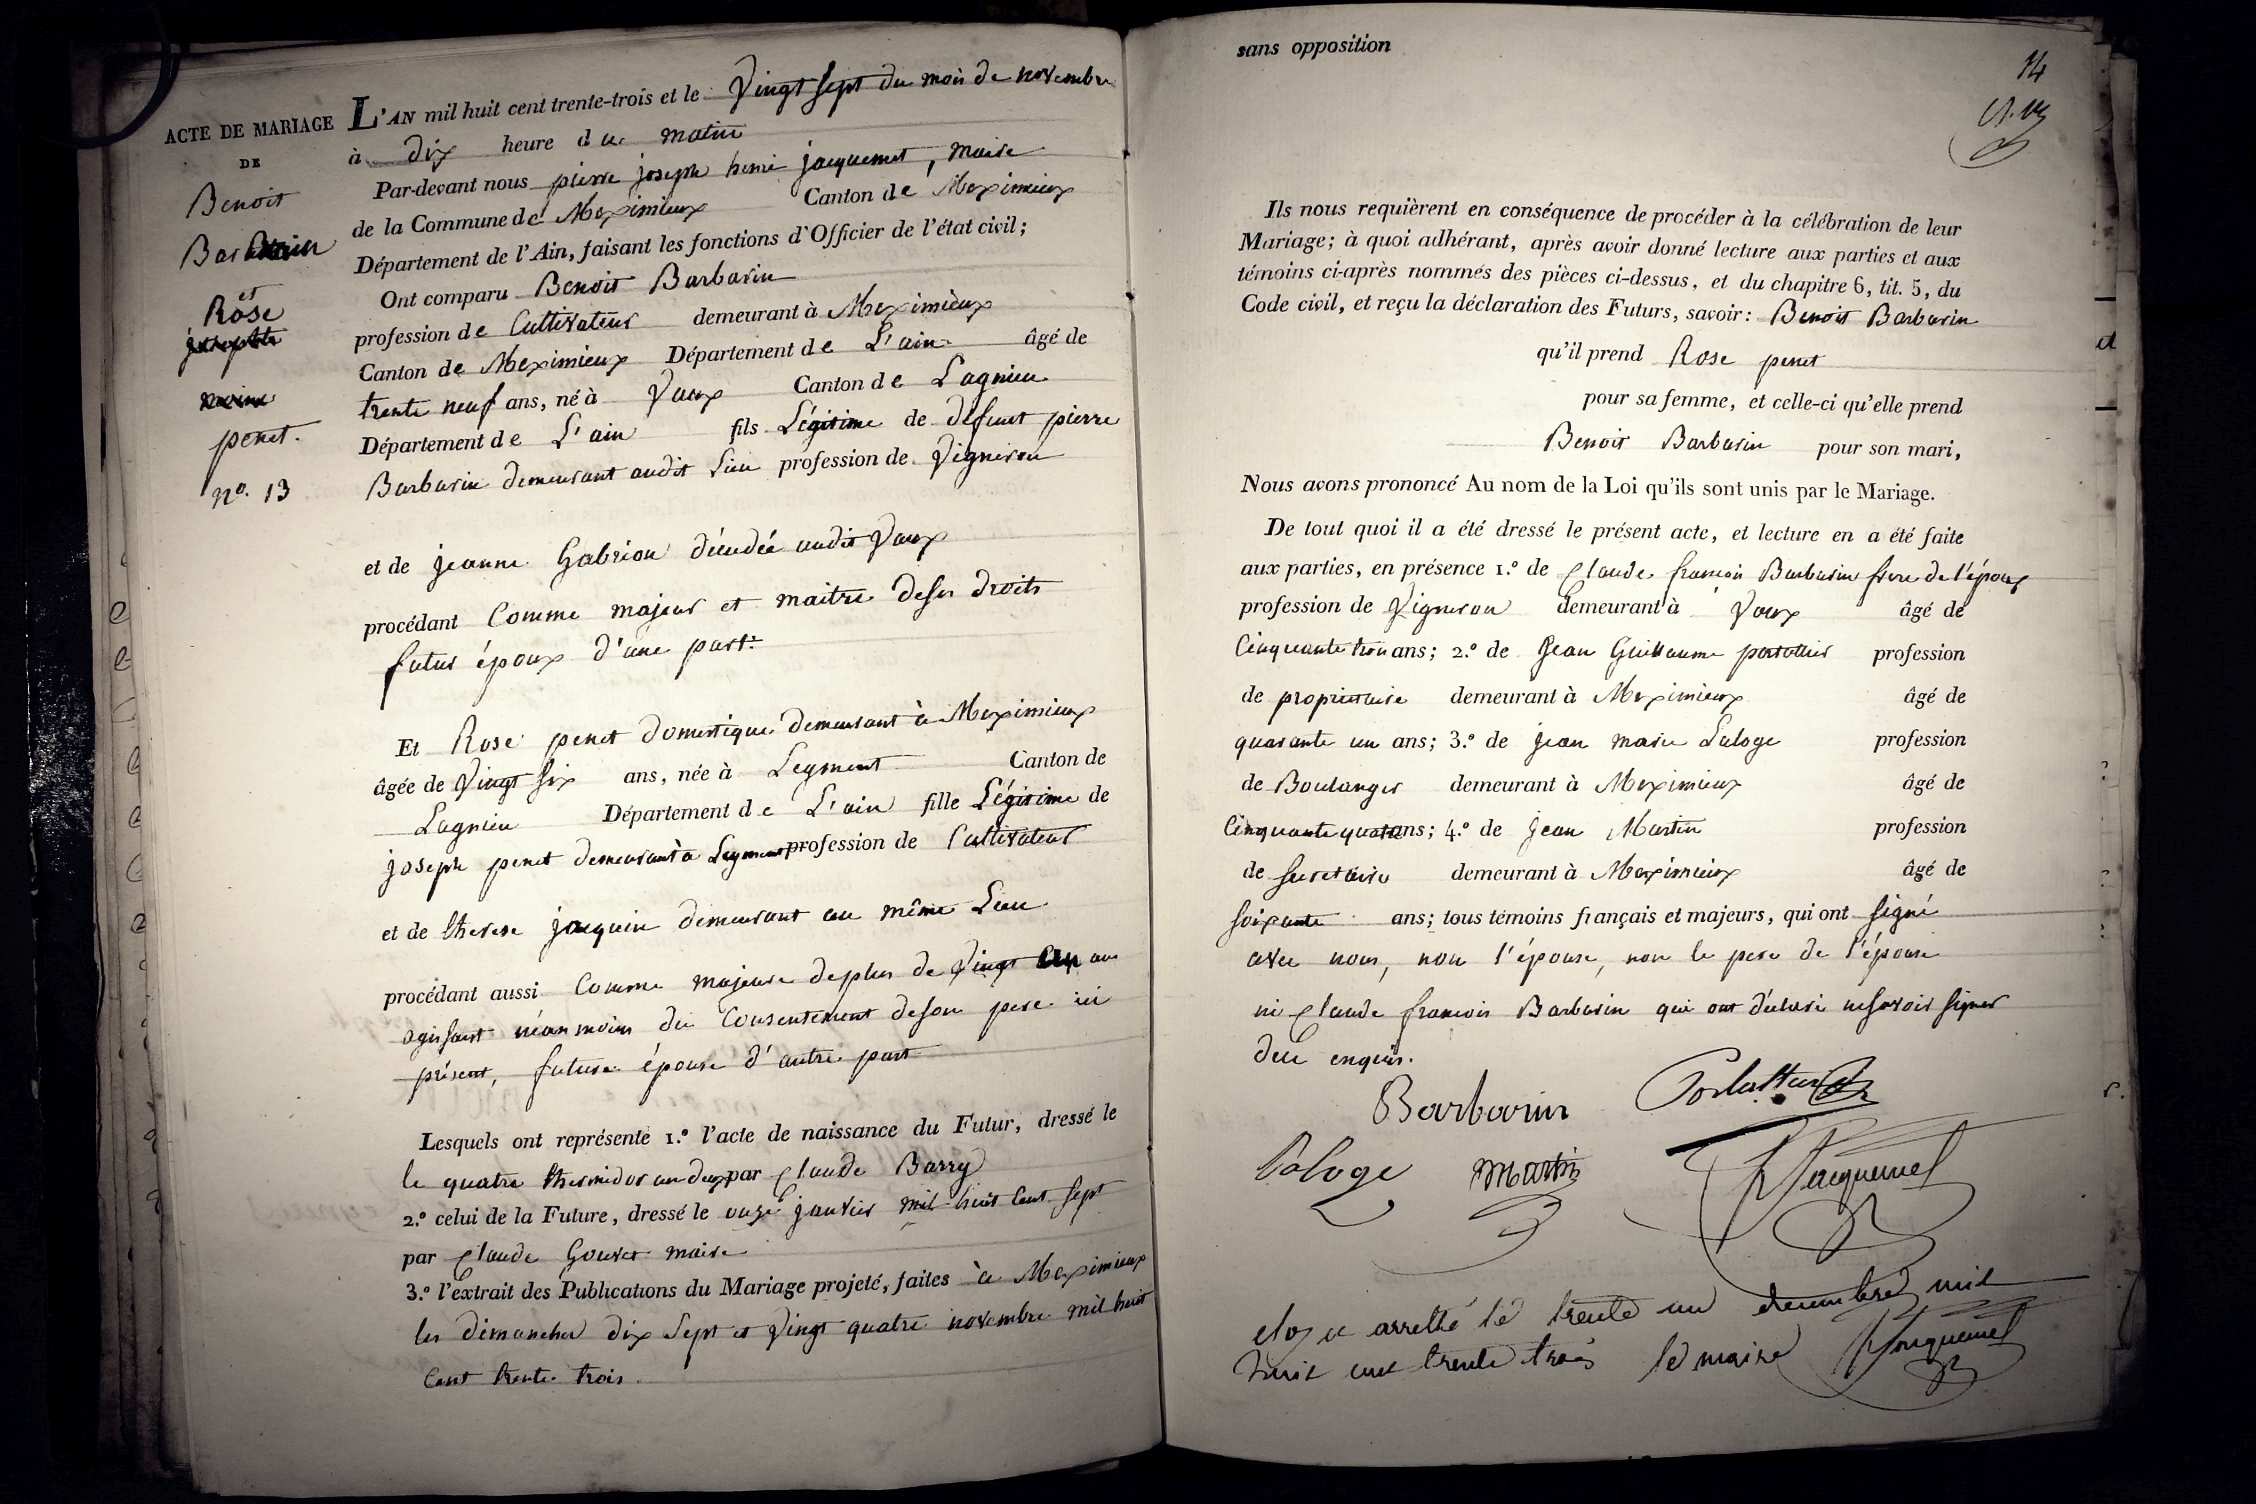 ACTE DE MARIAGE
DE
Benoit
Barbarin
et
Rose
penet.
no. 13
L'AN mil huit cent trente-trois et le Vingt sept du mois de novembre
à dix heure du matin
Par-devant nous pierre joseph henri jacquemet, maire
de la Commune de Meximieux Canton de Meximieux
Département de l'Ain, faisant les fonctions d'Officier de l'état civil;
Ont comparu Benoit Barbarin
profession de Cultivateur demeurant à Meximieux
Canton de Meximieux Département de L'ain âgé de
trente neuf ans, né à Vaux Canton de Lagnieu
Département de L'ain fils Légitime de défunt pierre
Barbarin demeurant audit Lieu profession de Vigneron
et de jeanne Gabrion décédée audit Vaux
procédant Comme majeur et maitre de ses droits
futur époux d'une part.
Et Rose penet domestique demeurant à Meximieux
âgée de Vingt six ans, née à Leyment Canton de
Lagnieu Département de L'ain fille Légitime de
joseph penet demeurant à Leyment profession de Cultivateur
et de therese jacquin demeurant au même Lieu
procédant aussi Comme majeure de plus de Vingt un ans
agissant néanmoins du Consentement de son pere ici
présent, future épouse d'autre part
Lesquels ont représenté 1.º l'acte de naissance du Futur, dressé le
le quatre thermidor an deux par Claude Barry
2.º celui de la Future, dressé le onze janvier mil huit Cent sept
par Claude Gouvet maire
3.º l'extrait des Publications du Mariage projeté, faites à Meximieux
les dimanches dix sept et Vingt quatre novembre mil huit
Cent trente trois.
sans opposition
14
Ils nous requièrent en conséquence de procéder à la célébration de leur
Mariage; à quoi adhérant, après avoir donné lecture aux parties et aux
témoins ci-après nommés des pièces ci-dessus, et du chapitre 6, tit. 5, du
Code civil, et reçu la déclaration des Futurs, savoir: Benoit Barbarin
qu'il prend Rose penet
pour sa femme, et celle-ci qu'elle prend
Benoit Barbarin pour son mari,
Nous avons prononcé Au nom de la Loi qu'ils sont unis par le Mariage.
De tout quoi il a été dressé le présent acte, et lecture en a été faite
aux parties, en présence 1.º de Claude françois Barbarin frere de l'époux
profession de Vigneron demeurant à Vaux âgé de
Cinquante trois ans; 2.º de Jean Guillaume portallier profession
de propriétaire demeurant à Meximieux âgé de
quarante un ans; 3.º de jean marie Laloge profession
de Boulanger demeurant à Meximieux âgé de
Cinquante quatre ans; 4.º de jean Martin profession
de secretaire demeurant à Meximieux âgé de
soixante ans; tous témoins français et majeurs, qui ont signé
avec nous, non l'épouse, non le pere de l'épouse
ni Claude françois Barbarin qui ont déclaré ne savoir signer
de ce enquis.
Barbarin
Laloge Martin Jacquemet
clos et arretté le trente un decembre mil
huit cent trente trois le maire Jacquemet